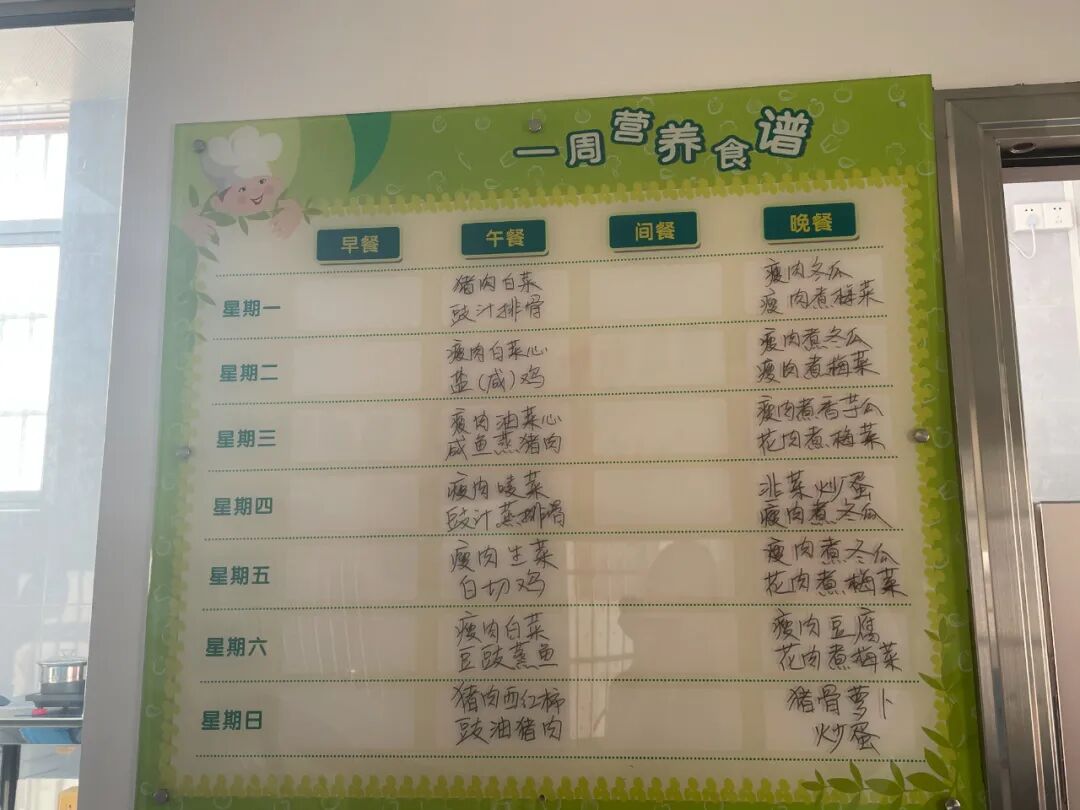 一周营养食谱
早餐 午餐 间餐 晚餐
星期一
猪肉白菜
豉汁排骨
瘦肉冬瓜
瘦肉煮梅菜
星期二
瘦肉白菜心
盐(咸)鸡
瘦肉煮冬瓜
瘦肉煮梅菜
星期三
瘦肉油菜心
咸鱼蒸猪肉
瘦肉煮香芋瓜
花肉煮梅菜
星期四
瘦肉唛菜
豉汁蒸排骨
韭菜炒蛋
瘦肉煮冬瓜
星期五
瘦肉生菜
白切鸡
瘦肉煮冬瓜
花肉煮梅菜
星期六
瘦肉白菜
豆豉蒸鱼
瘦肉豆腐
花肉煮梅菜
星期日
猪肉西红柿
豉油猪肉
猪骨萝卜
炒蛋